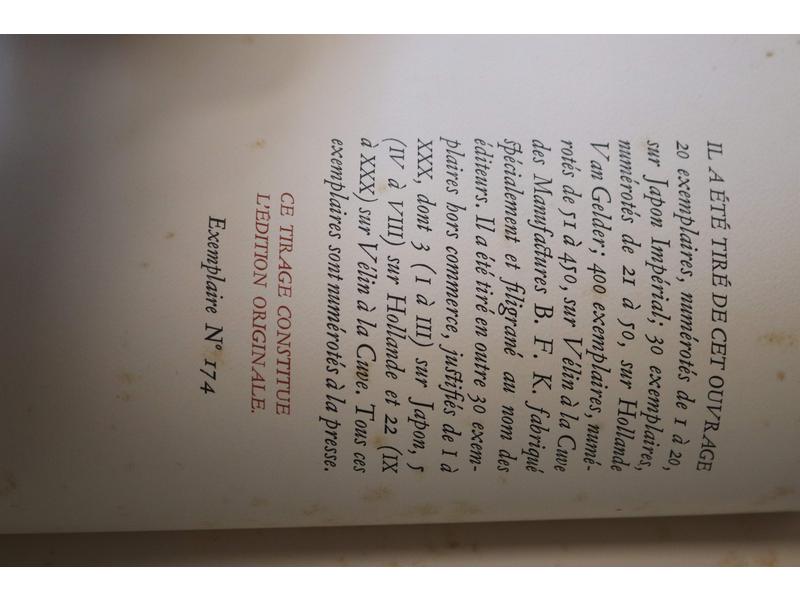 IL A ÉTÉ TIRÉ DE CET OUVRAGE
20 exemplaires, numérotés de 1 à 20,
sur Japon Impérial; 30 exemplaires,
numérotés de 21 à 50, sur Hollande
Van Gelder; 400 exemplaires, numé-
rotés de 51 à 450, sur Vélin à la Cuve
des Manufactures B. F. K. fabriqué
spécialement et filigrané au nom des
éditeurs. Il a été tiré en outre 30 exem-
plaires hors commerce, justifiés de I à
XXX, dont 3 (I à III) sur Japon, 5
(IV à VIII) sur Hollande et 22 (IX
à XXX) sur Vélin à la Cuve. Tous ces
exemplaires sont numérotés à la presse.
CE TIRAGE CONSTITUE
L'ÉDITION ORIGINALE.
Exemplaire N° 174